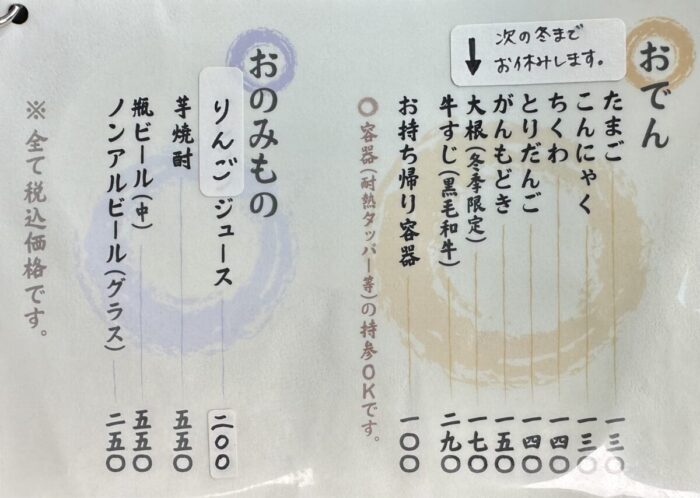 おでん
次の冬まで
お休みします。
↓
たまご 一三〇
こんにゃく 一三〇
ちくわ 一四〇
とりだんご 一四〇
がんもどき 一五〇
大根(冬季限定) 一七〇
牛すじ(黒毛和牛) 二九〇
お持ち帰り容器 一〇〇
○容器(耐熱タッパー等)の持参OKです。
おのみもの
りんごジュース 二〇〇
芋焼酎 五五〇
瓶ビール(中) 五五〇
ノンアルビール(グラス) 二五〇
※全て税込価格です。